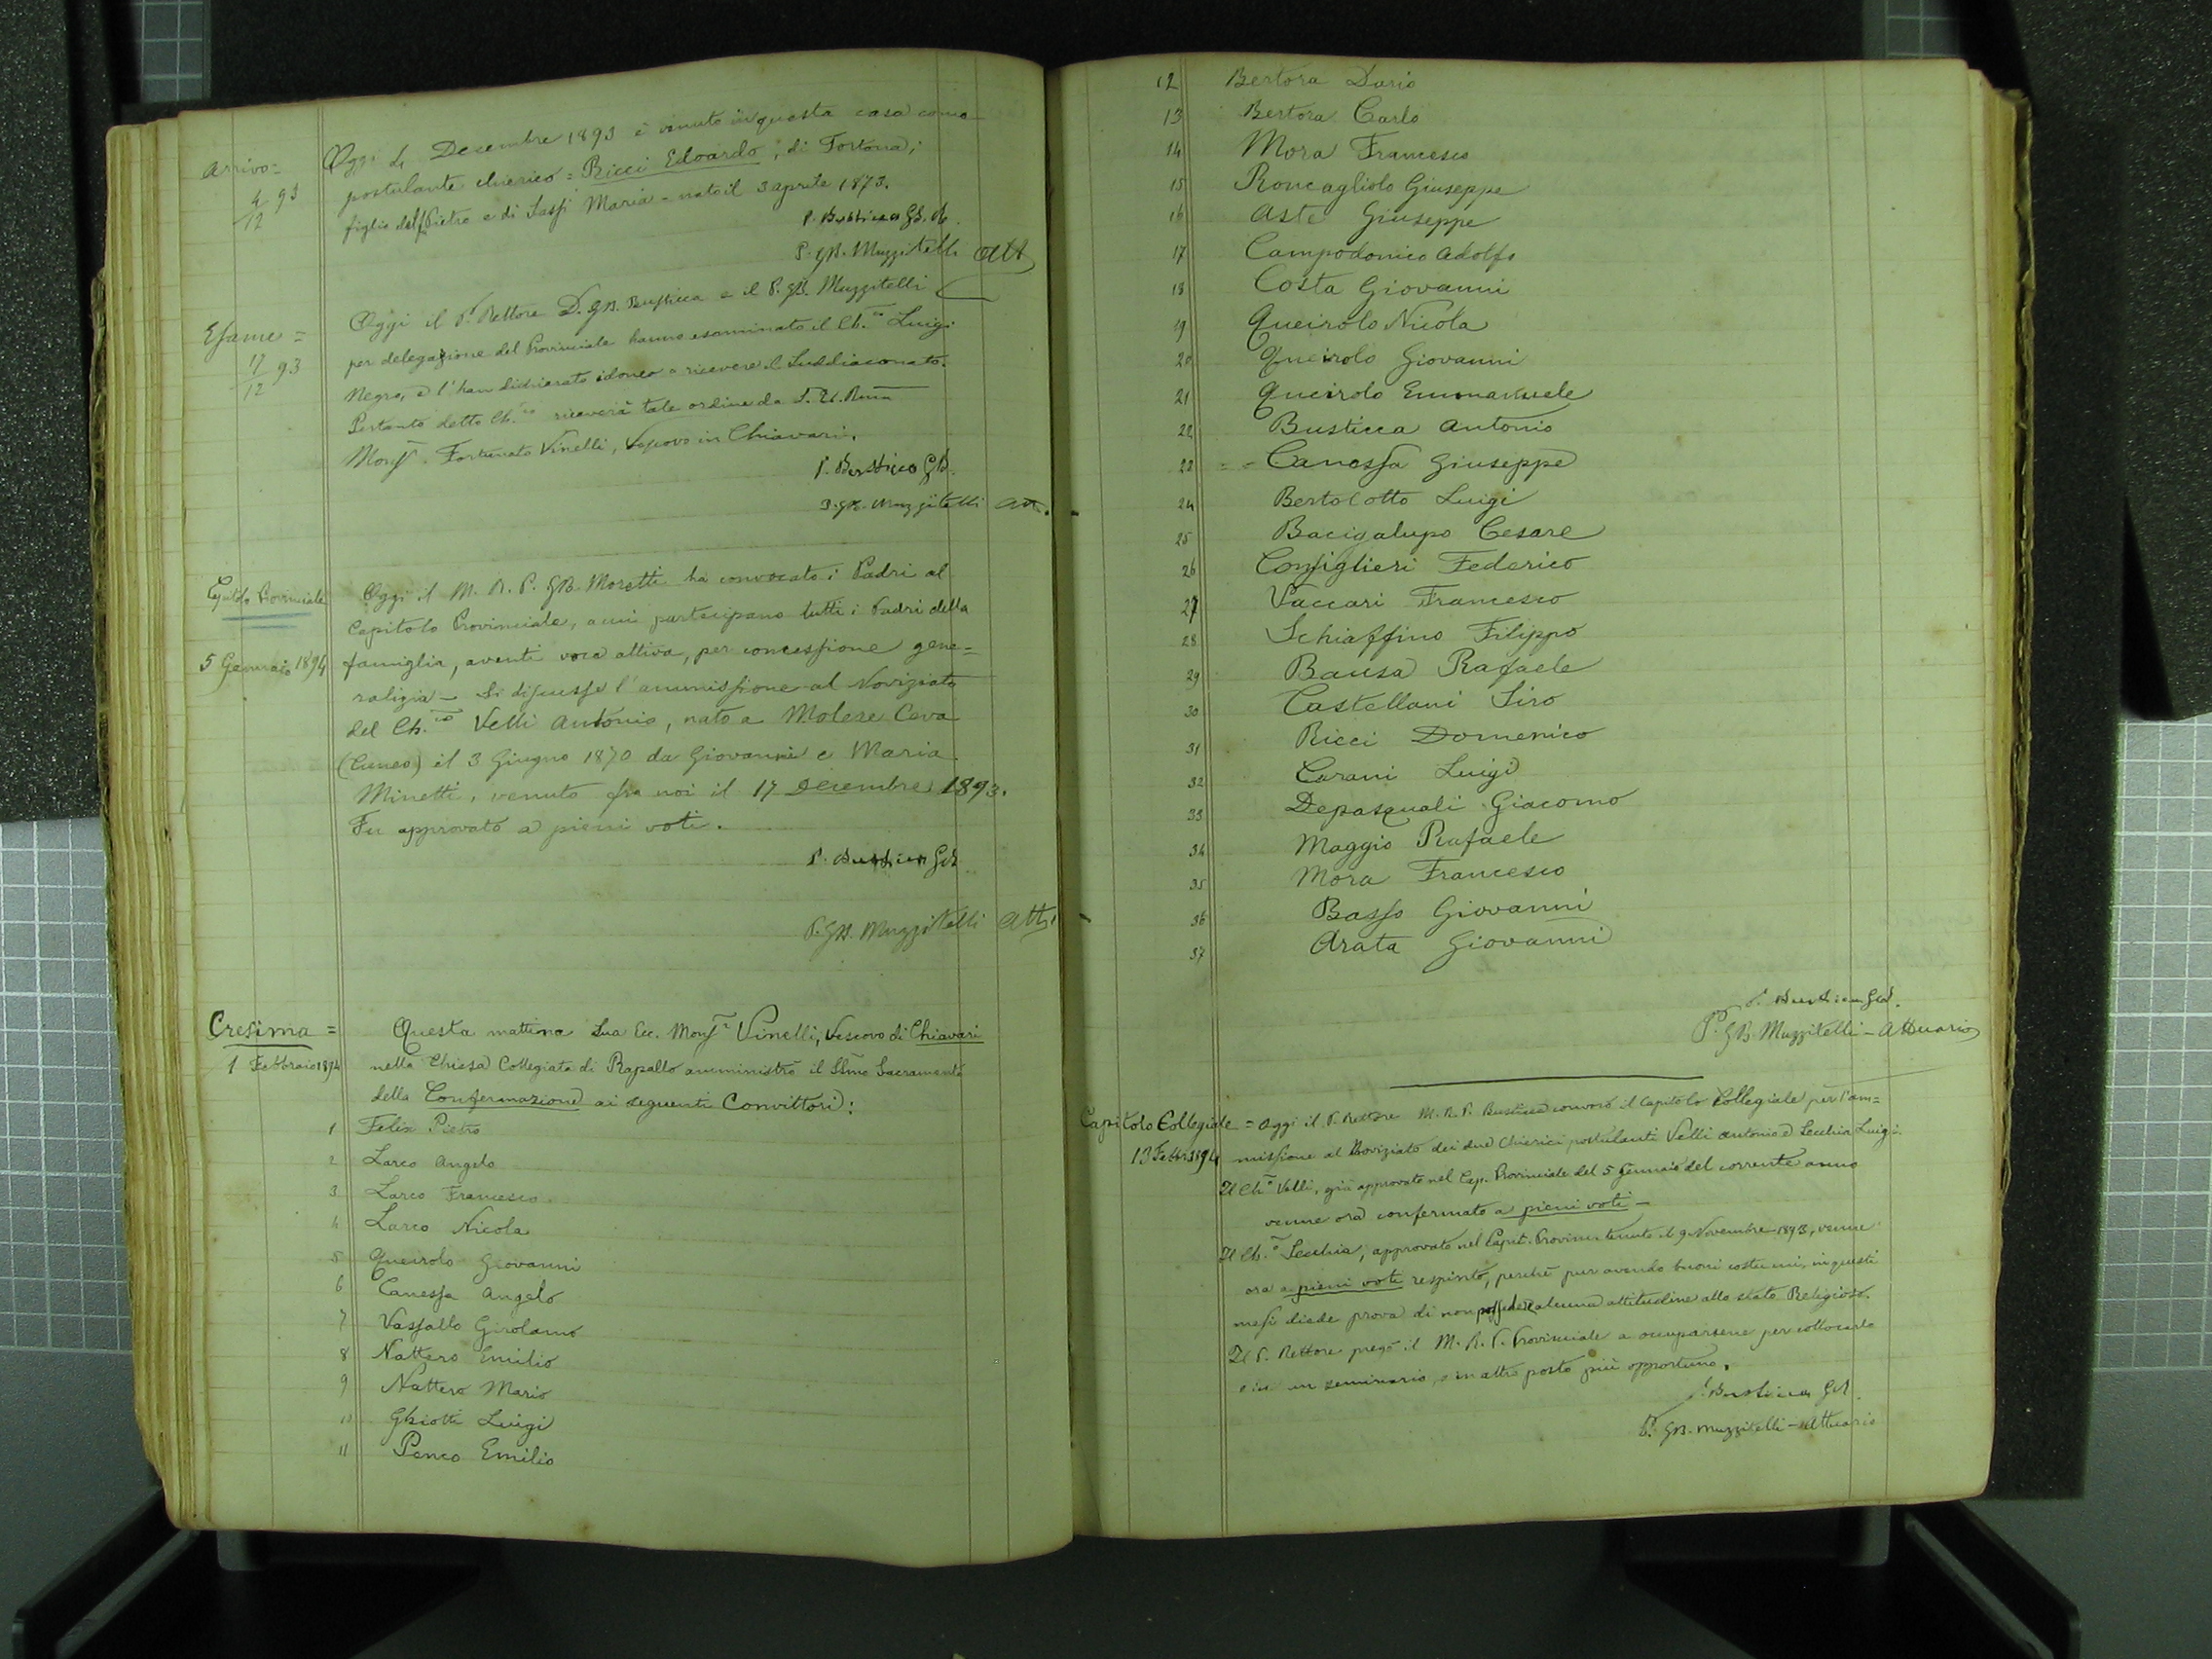 Arrivo =
4/12 93
Oggi 4 Decembre 1893 è venuto in questa casa come
postulante chierico = Ricci Edoardo, di Tortona,
figlio del Pietro e di Sassi Maria - nato il 3 aprile 1873.
P. Bustica GB. R.
P. GB. Muzzitelli Att
Esame =
17/12 93
Oggi il P. Rettore D. GB. Bustica e il P. GB. Muzzitelli
per delegazione del Provinciale hanno esaminato il Ch.co Luigi
Negro, e l'han dichiarato idoneo a ricevere il Suddiaconato.
Pertanto detto Ch.co riceverà tale ordine da S. E. Rma
Monsr. Fortunato Vinelli, Vescovo in Chiavari.
P. Bustica GB.
P. GB. Muzzitelli Att.
Capitolo Provinciale
5 Gennaio 1894
Oggi il M. R. P. GB. Moretti ha convocato i Padri al
Capitolo Provinciale, a cui partecipano tutti i Padri della
famiglia, aventi voce attiva, per concessione gene=
ralizia - Si discusse l'ammissione al Noviziato
del Ch.co Velli Antonio, nato a Molere Ceva
(Cuneo) il 3 Giugno 1870 da Giovanni e Maria
Minetti, venuto fra noi il 17 Decembre 1893.
Fu approvato a pieni voti.
P. Bustica GB.
P. GB. Muzzitelli Att.
Cresima =
1 Febbraio 1894
Questa mattina Sua Ecc. Monsr Vinelli, Vescovo di Chiavari
nella Chiesa Collegiata di Rapallo amministrò il SSmo Sacramento
della Confermazione ai seguenti Convittori:
1 Felix Pietro
2 Larco Angelo
3 Larco Francesco
4 Larco Nicola
5 Queirolo Giovanni
6 Canessa Angelo
7 Vassallo Girolamo
8 Nattero Emilio
9 Nattero Mario
10 Ghiotti Luigi
11 Penco Emilio
12 Bertora Dario
13 Bertora Carlo
14 Mora Francesco
15 Roncagliolo Giuseppe
16 Aste Giuseppe
17 Campodonico Adolfo
18 Costa Giovanni
19 Queirolo Nicola
20 Queirolo Giovanni
21 Queirolo Emmanuele
22 Busticca Antonio
22 = = Canessa Giuseppe
24 Bertolotto Luigi
25 Bacigalupo Cesare
26 Consiglieri Federico
27 Vaccari Francesco
28 Schiaffino Filippo
29 Bausa Rafaele
30 Castellani Siro
31 Ricci Domenico
32 Carani Luigi
33 Depasquali Giacomo
34 Maggio Rafaele
35 Mora Francesco
36 Basso Giovanni
37 Arata Giovanni
P. Bustica GB.
P. GB. Muzzitelli - Attuario
Capitolo Collegiale =
13 Febb. 1894
Oggi il P. Rettore M. R. P. Bustica convocò il Capitolo Collegiale per l'am=
missione al Noviziato dei due Chierici postulanti Velli Antonio e Secchia Luigi.
Il Ch.o Velli, già approvato nel Cap. Provinciale del 5 Gennaio del corrente anno
venne ora confermato a pieni voti -
Il Ch.o Secchia, approvato nel Capit. Provin. tenuto il 9 Novembre 1893, venne
ora a pieni voti respinto, perchè pur avendo buoni costumi, in questi
mesi diede prova di non possedere alcuna attitudine allo stato Religioso.
Il P. Rettore pregò il M. R. P. Provinciale a occuparsene per collocarlo
o in un seminario, o in altro posto più opportuno.
P. Bustica GB.
P. GB. Muzzitelli - Attuario